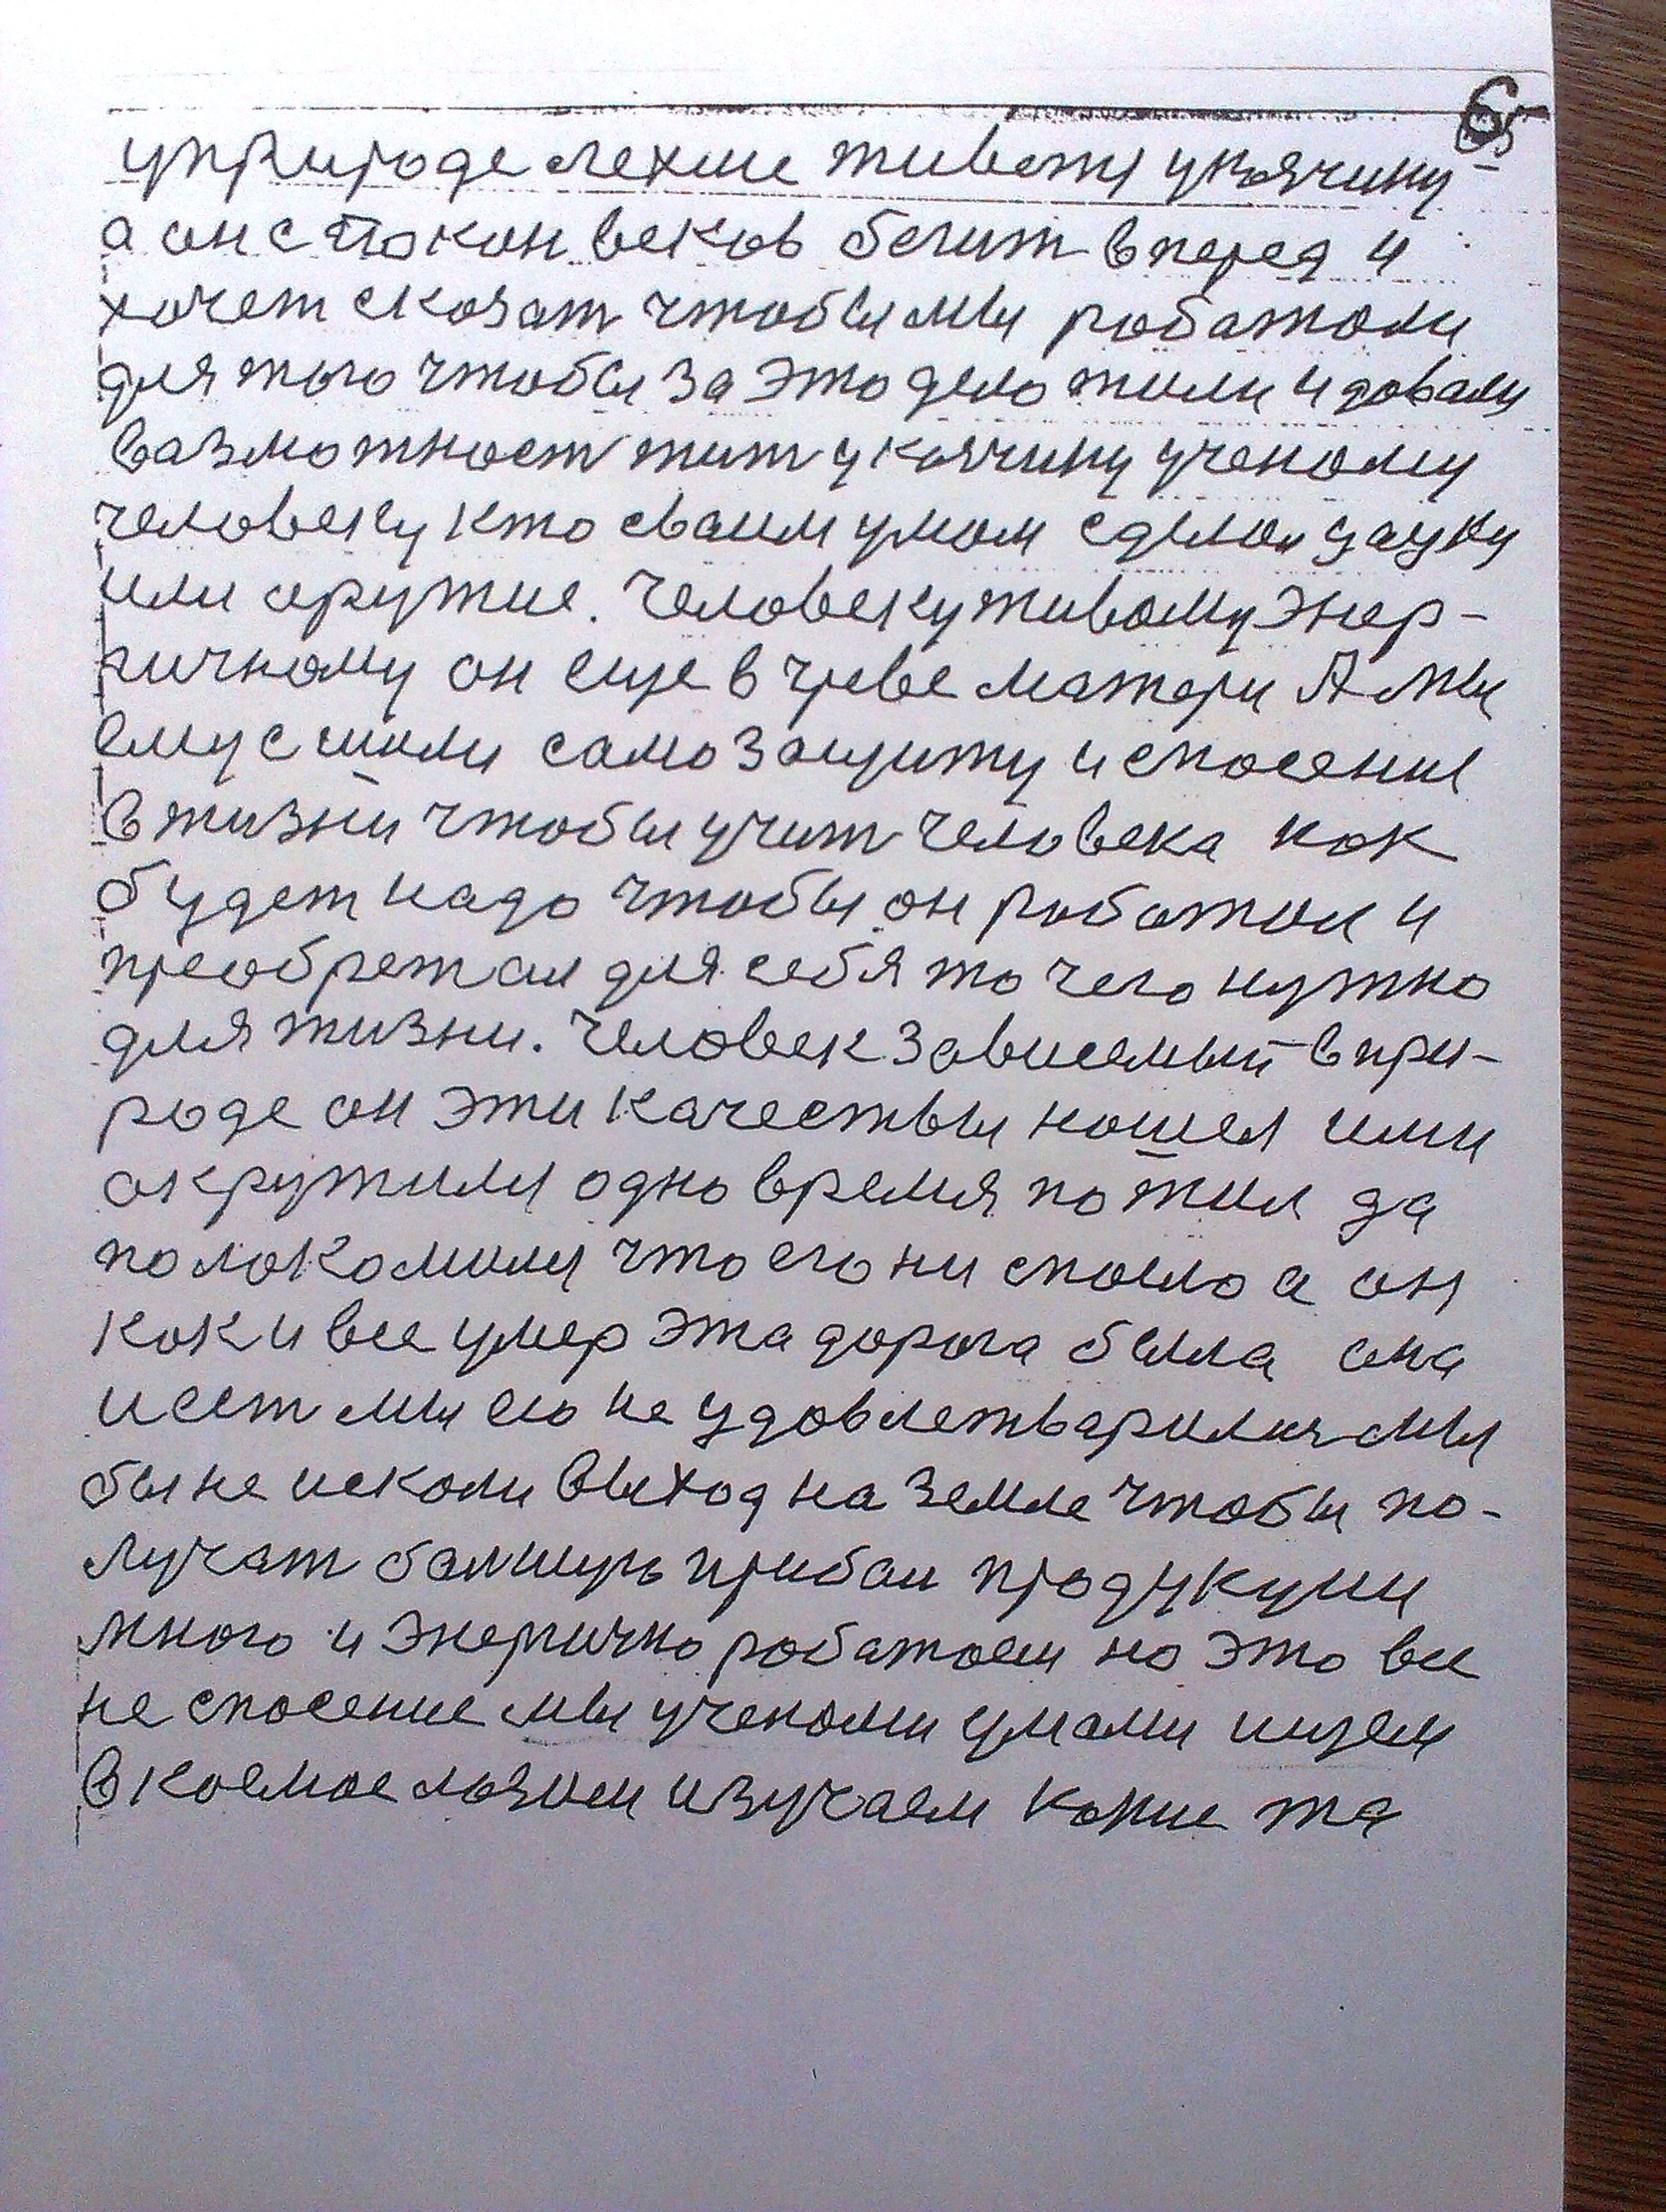 уприроде легше живому
а он споконвеков бегит вперед и
хочет сказат чтобы мы работали
для того чтобы за это дело жили и довали
вазможност жит ученому
человеку кто сваим умом сделал
или аружие. человеку живому энер-
гичному он еще в чреве матери А мы
ему сшили самозащиту и спосение
в жизни чтобы учит человека как
будет надо чтобы он работал и
преобретал для себя то чего нужно
для жизни. человек зависемый в при-
роде он эти качествы нашел ими
акружили одно время пожил да
полокомили что его ни спасло а он
как и все умер эта дорога былла она
и ест мы ею не удовлетварилис мы
бы не искали выход на земле чтобы по-
лучат болшую прибыл продукции
много и энергично работаем но это все
не спосение мы учеными умами ищем
в космос лазием изучаем какие та